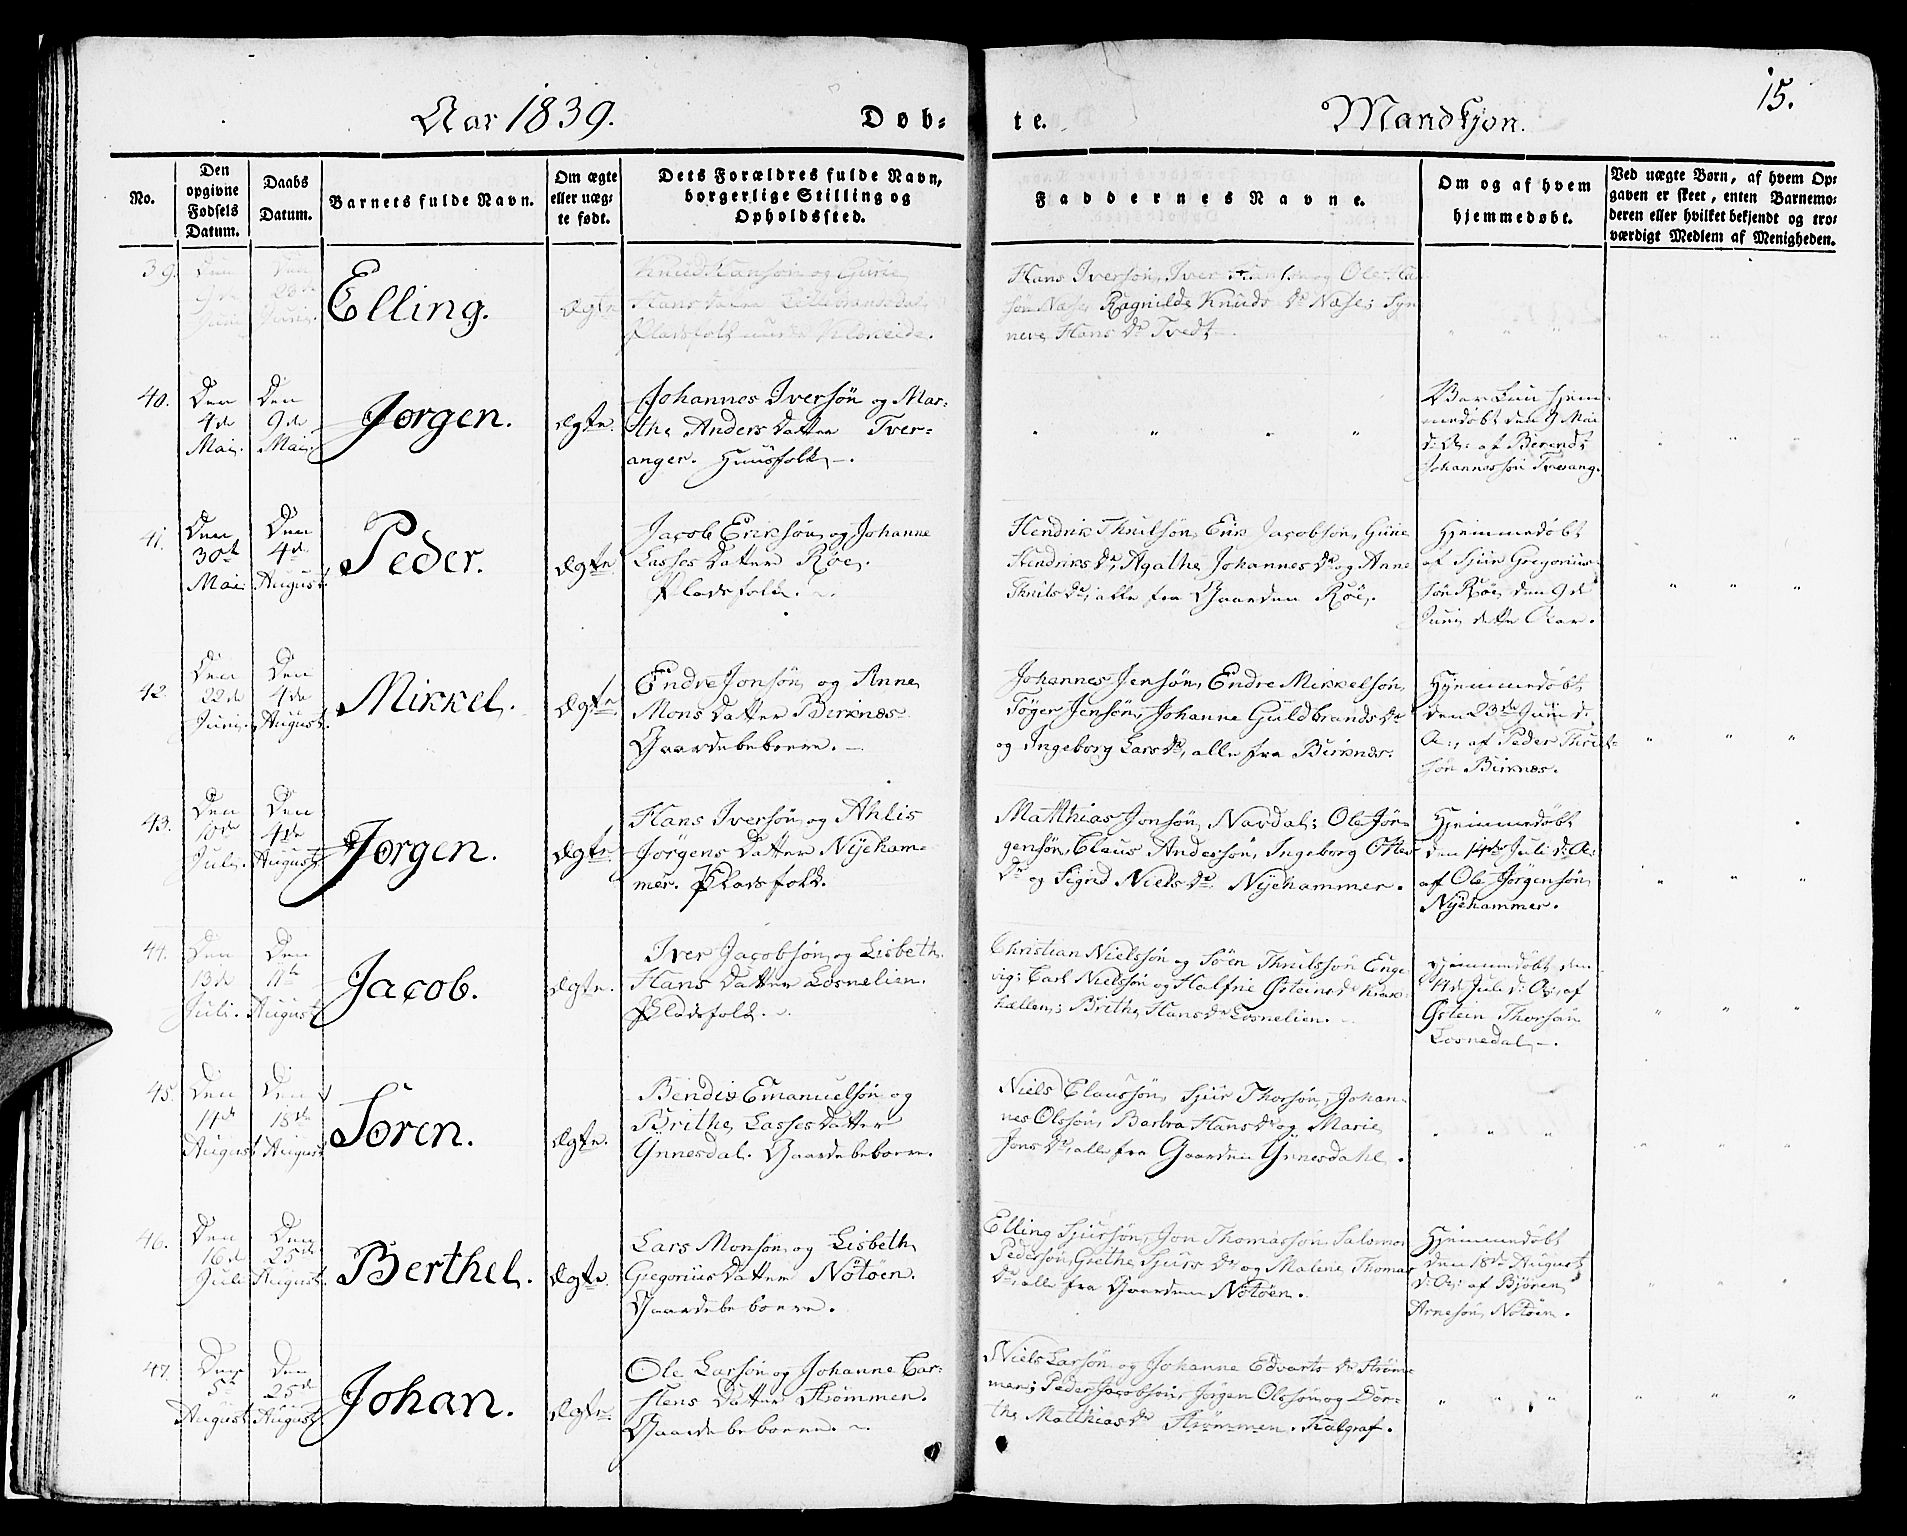 Aar 1839.
Døb-
te.
Mandkjøn.
15.
No.
Den opgivne Fødsels Datum.
Daabs Datum.
Barnets fulde Navn.
Om ægte eller uæg-
te født.
Dets Forældres fulde Navn,
borgerlige Stilling og
Opholdssted.
Faddernes Navne.
Om og af hvem
hjemmedøbt.
Ved uægte Børn, af hvem Op-
gaven er skeet, enten Barnemo-
deren eller hvilket bekjendt og tro-
værdigt Medlem af Menigheden.
39.
Den 9de Juni
Den 23de Juni.
Elling.
Ægte
Knud Hansøn og Guri
Hans Datter
Pladsfolk under
Hans Iversøn, Iver og Ole
søn Næse, Ragnilde Knuds Dr Næse, Syn-
neve Hans Dr Tvedt
40.
Den 4de Mai.
Den 9de Mai.
Jørgen.
Ægte.
Johannes Iversøn og Mar-
the Anders Datter Tver-
anger. Huusfolk -.
Var kun hjem-
medøbt den 9 Mai
d: A: af Berendt
Johannessøn Tverang.
41.
Den 30te Mai
Den 4de August.
Peder.
Ægte
Jacob Eriksøn og Johanne
Lasses Datter Røe.
Pladsfolk.
Hendrik Thrulsøn, Erik Jacobsøn, Guri
Hendriks Dr, Agathe Johannes Dr og Anne
Thruls Dr, alle fra Gaarden Røe.
Hjemmedøbt
af Sjur Gregorius-
søn Røe, den 9de
Juni dette Aar.
42.
Den 22de Juni.
Den 4de August.
Mikkel.
Ægte
Endre Jonsøn og Anne
Mons Datter Birknæs
Gaardebeboere. -
Johannes Jensøn, Endre Mikkelsøn,
Tøger Jensøn, Johanne Guldbrands Dr
og Ingeborg Lars Dr, alle fra Birknæs.
Hjemmedøbt
den 23de Juni d:
A:, af Peder Thrul-
søn Birknæs.
43.
Den 10de Juli.
Den 4de August
Jørgen.
Ægte.
Hans Iversøn og Ahlis
Jørgens Datter Nyeham-
mer. Pladsfolk.
Matthias Jonsøn, Nardal; Ole Jør-
gensøn, Claus Andersøn, Ingeborg Ottes
Dr og Sigrid Niels Dr Nyehammer.
Hjemmedøbt
den 14de Juli d: A:
af Ole Jørgensøn
Nyehammer.
44.
Den 13de Juli.
Den 11te August
Jacob.
Ægte.
Iver Jacobsøn og Lisbeth
Hans Datter Losnelien.
Pladsfolk.
Christian Nielssøn og Søen Thrulssøn Enge-
vig; Carl Nielssøn og Halfrie Østeins Dr Krak-
hællen; Brithe Hans Dr Losnelien. -
Hjemmedøbt den
14de Juli d: A:, af
Østein Thorsøn
Losnedal -.
45.
Den 11de August
Den 18de August
Søren.
Ægte.
Bendix Emanuelsøn og
Brithe Lasses Datter
Ynnesdal. Gaardebeboere.
Niels Claussøn, Sjur Thorsøn, Johan-
nes Olssøn, Barbra Hans Dr og Marie
Jons Dr, alle fra Gaarden Ynnesdahl.
46.
Den 16de Juli
Den 25de August.
Berthel.
Ægte.
Lars Monsøn og Lisbeth
Gregorius Datter Nøtøen.
Gaardebeboere.
Elling Sjursøn, Jon Thomassøn, Salomon
Pedersøn, Grethe Sjurs Dr og Malene Thomas
Dr, alle fra Gaarden Nøtøen.
Hjemmedøbt
den 18de August
d: A: af Bjøren
Arnesøn Nøtøen.
47.
Den 5te August
Den 25de August
Johan.
Ægte.
Ole Larsøn og Johanne Car-
stens Datter Strømmen.
Gaardebeboere. -
Niels Larsøn og Johanne Edvarts Dr Strøm-
men; Peder Jacobsøn, Jørgen Olssøn og Dor-
the Matthias Dr Strømmen. Kalgraf.